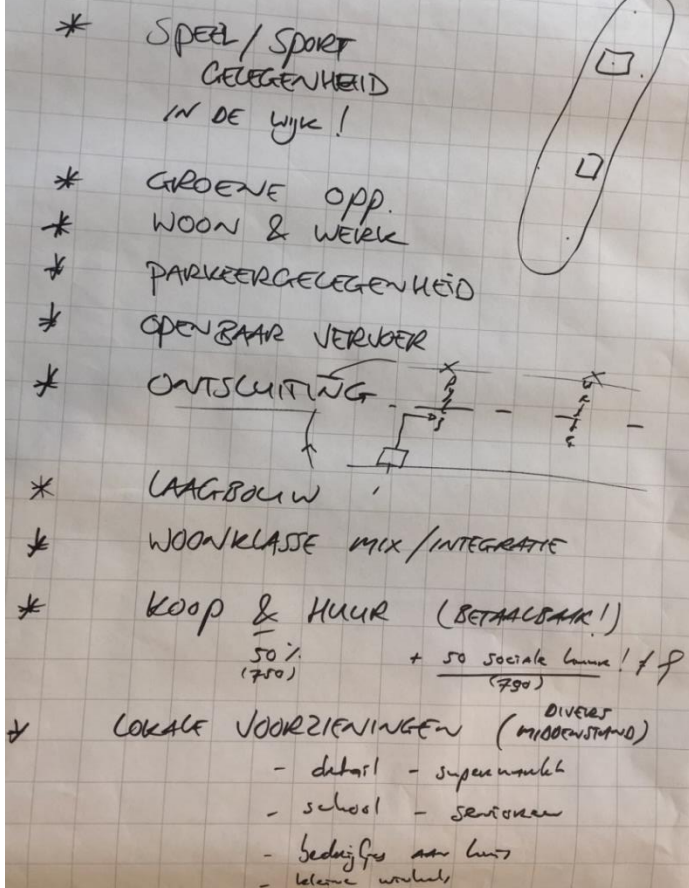 * SPEEL / SPORT
GELEGENHEID
IN DE WIJK !
* GROENE OPP.
* WOON & WERK
* PARKEERGELEGENHEID
* OPENBAAR VERVOER
* ONTSLUITING
* LAAGBOUW
* WOONKLASSE MIX / INTEGRATIE
* KOOP & HUUR (BETAALBAAR!)
50% + 50 sociale !
(750) (790)
* LOKALE VOORZIENINGEN (DIVERS
MIDDENSTAND)
- detail - supermarkt
- school - senioren
- bedrijfjes aan huis
- kleine winkels